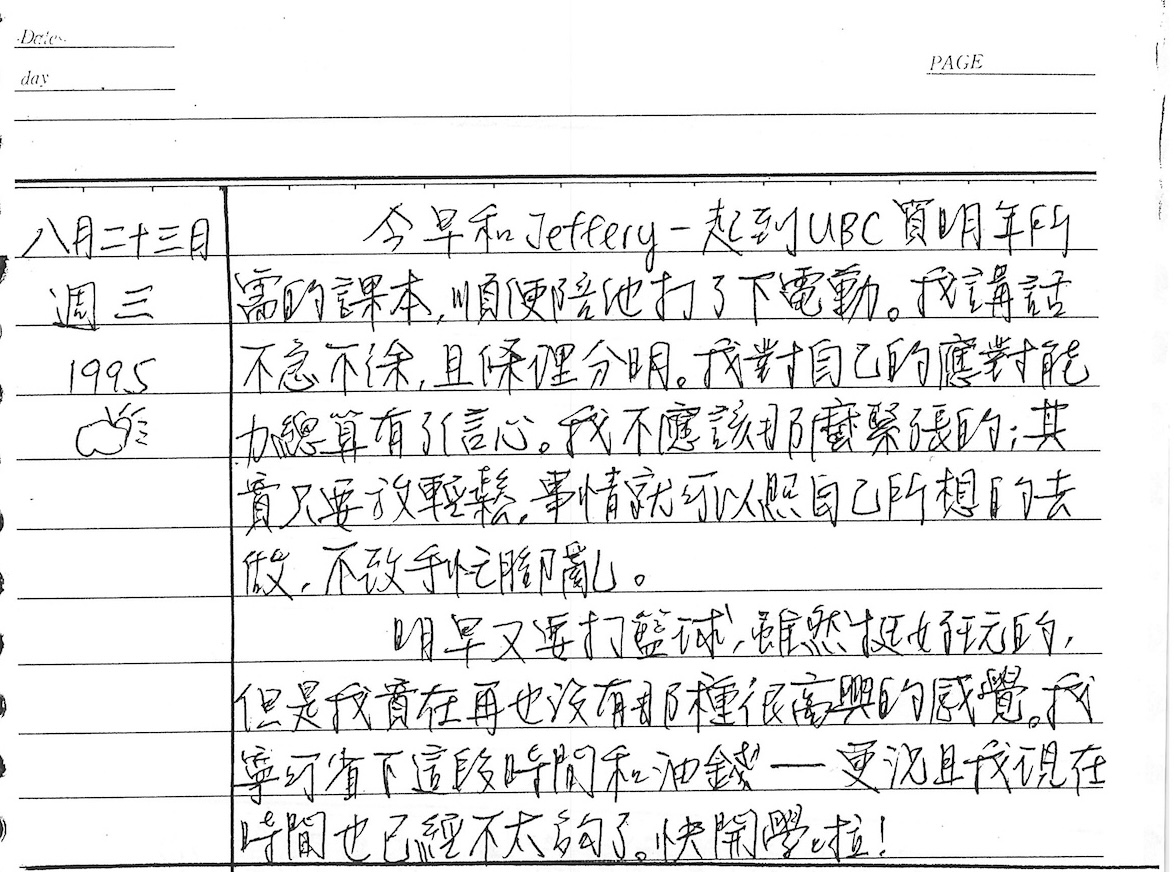 Date
day
PAGE
八月二十三日
週三
1995
今早和Jeffery一起到UBC買明年所
需的課本,順便陪他打了下電動。我講話
不急不徐,且條理分明。我對自己的應對能
力總算有了信心。我不應該那麼緊張的;其
實只要放輕鬆,事情就可以照自己所想的去
做,不致手忙腳亂。
明早又要打籃球,雖然挺好玩的,
但是我實在再也沒有那種很高興的感覺。我
寧可省下這段時間和油錢——更況且我現在
時間也已經不太夠了。快開學啦!